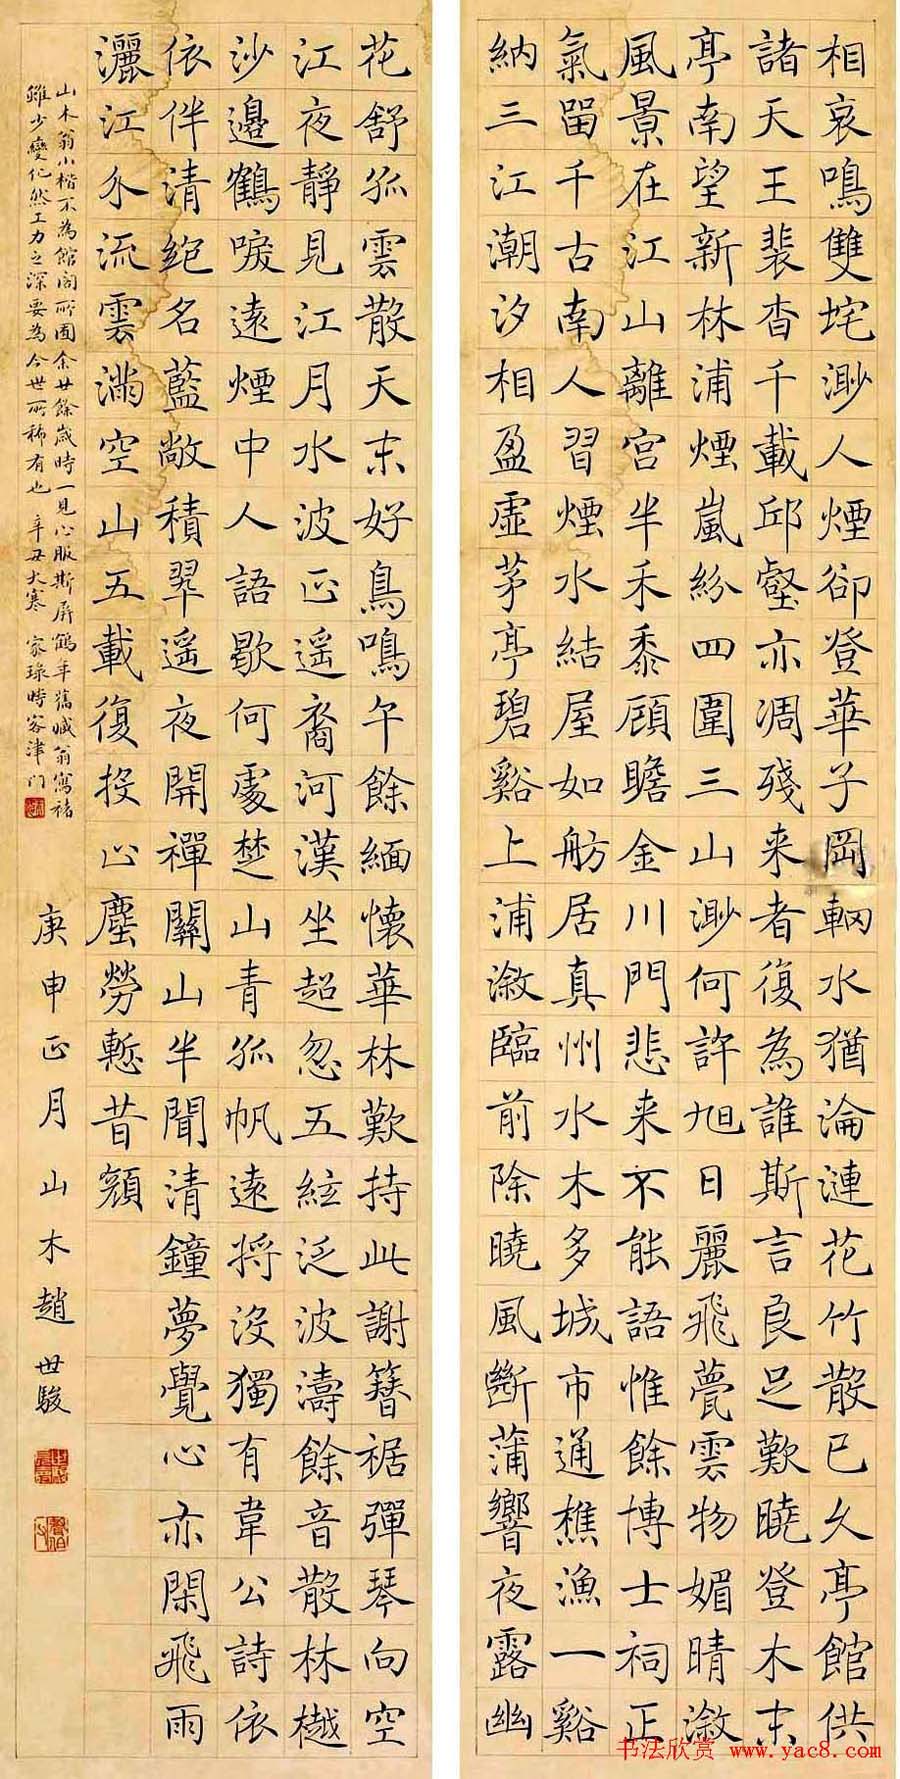 相哀鳴雙垞渺人煙卻登華子岡輞水猶淪漣花竹散已久亭館供
諸天王裴杳千載邱壑亦凋殘来者復為誰斯言良足歎曉登木末
亭南望新林浦煙嵐紛四圍三山渺何許旭日麗飛甍雲物媚晴漵
風景在江山離宮半禾黍顧瞻金川門悲来不能語惟餘博士祠正
氣留千古南人習煙水結屋如舫居真州水木多城市通樵漁一谿
納三江潮汐相盈虛茅亭碧谿上浦漵臨前除曉風斷蒲響夜露幽
花舒孤雲散天末好鳥鳴午餘緬懷華林歎持此謝簪裾彈琴向空
江夜靜見江月水波正遥裔河漢坐超忽五絃泛波濤餘音散林樾
沙邊鶴唳遠煙中人語歇何處楚山青孤帆遠將没獨有韋公詩依
依伴清絕名藍敞積翠遥夜開禪關山半聞清鐘夢覺心亦閑飛雨
灑江水流雲滿空山五載復投止塵勞慙昔顏
庚申正月山木趙世駿
山木翁小楷不為館閣所囿余廿餘歲時一見心服斯屏鶴年舊臧翁寫褚
雖少變化然工力之深要為今世所稀有也辛丑大寒家琭時客津门
书法欣赏 www.yac8.com